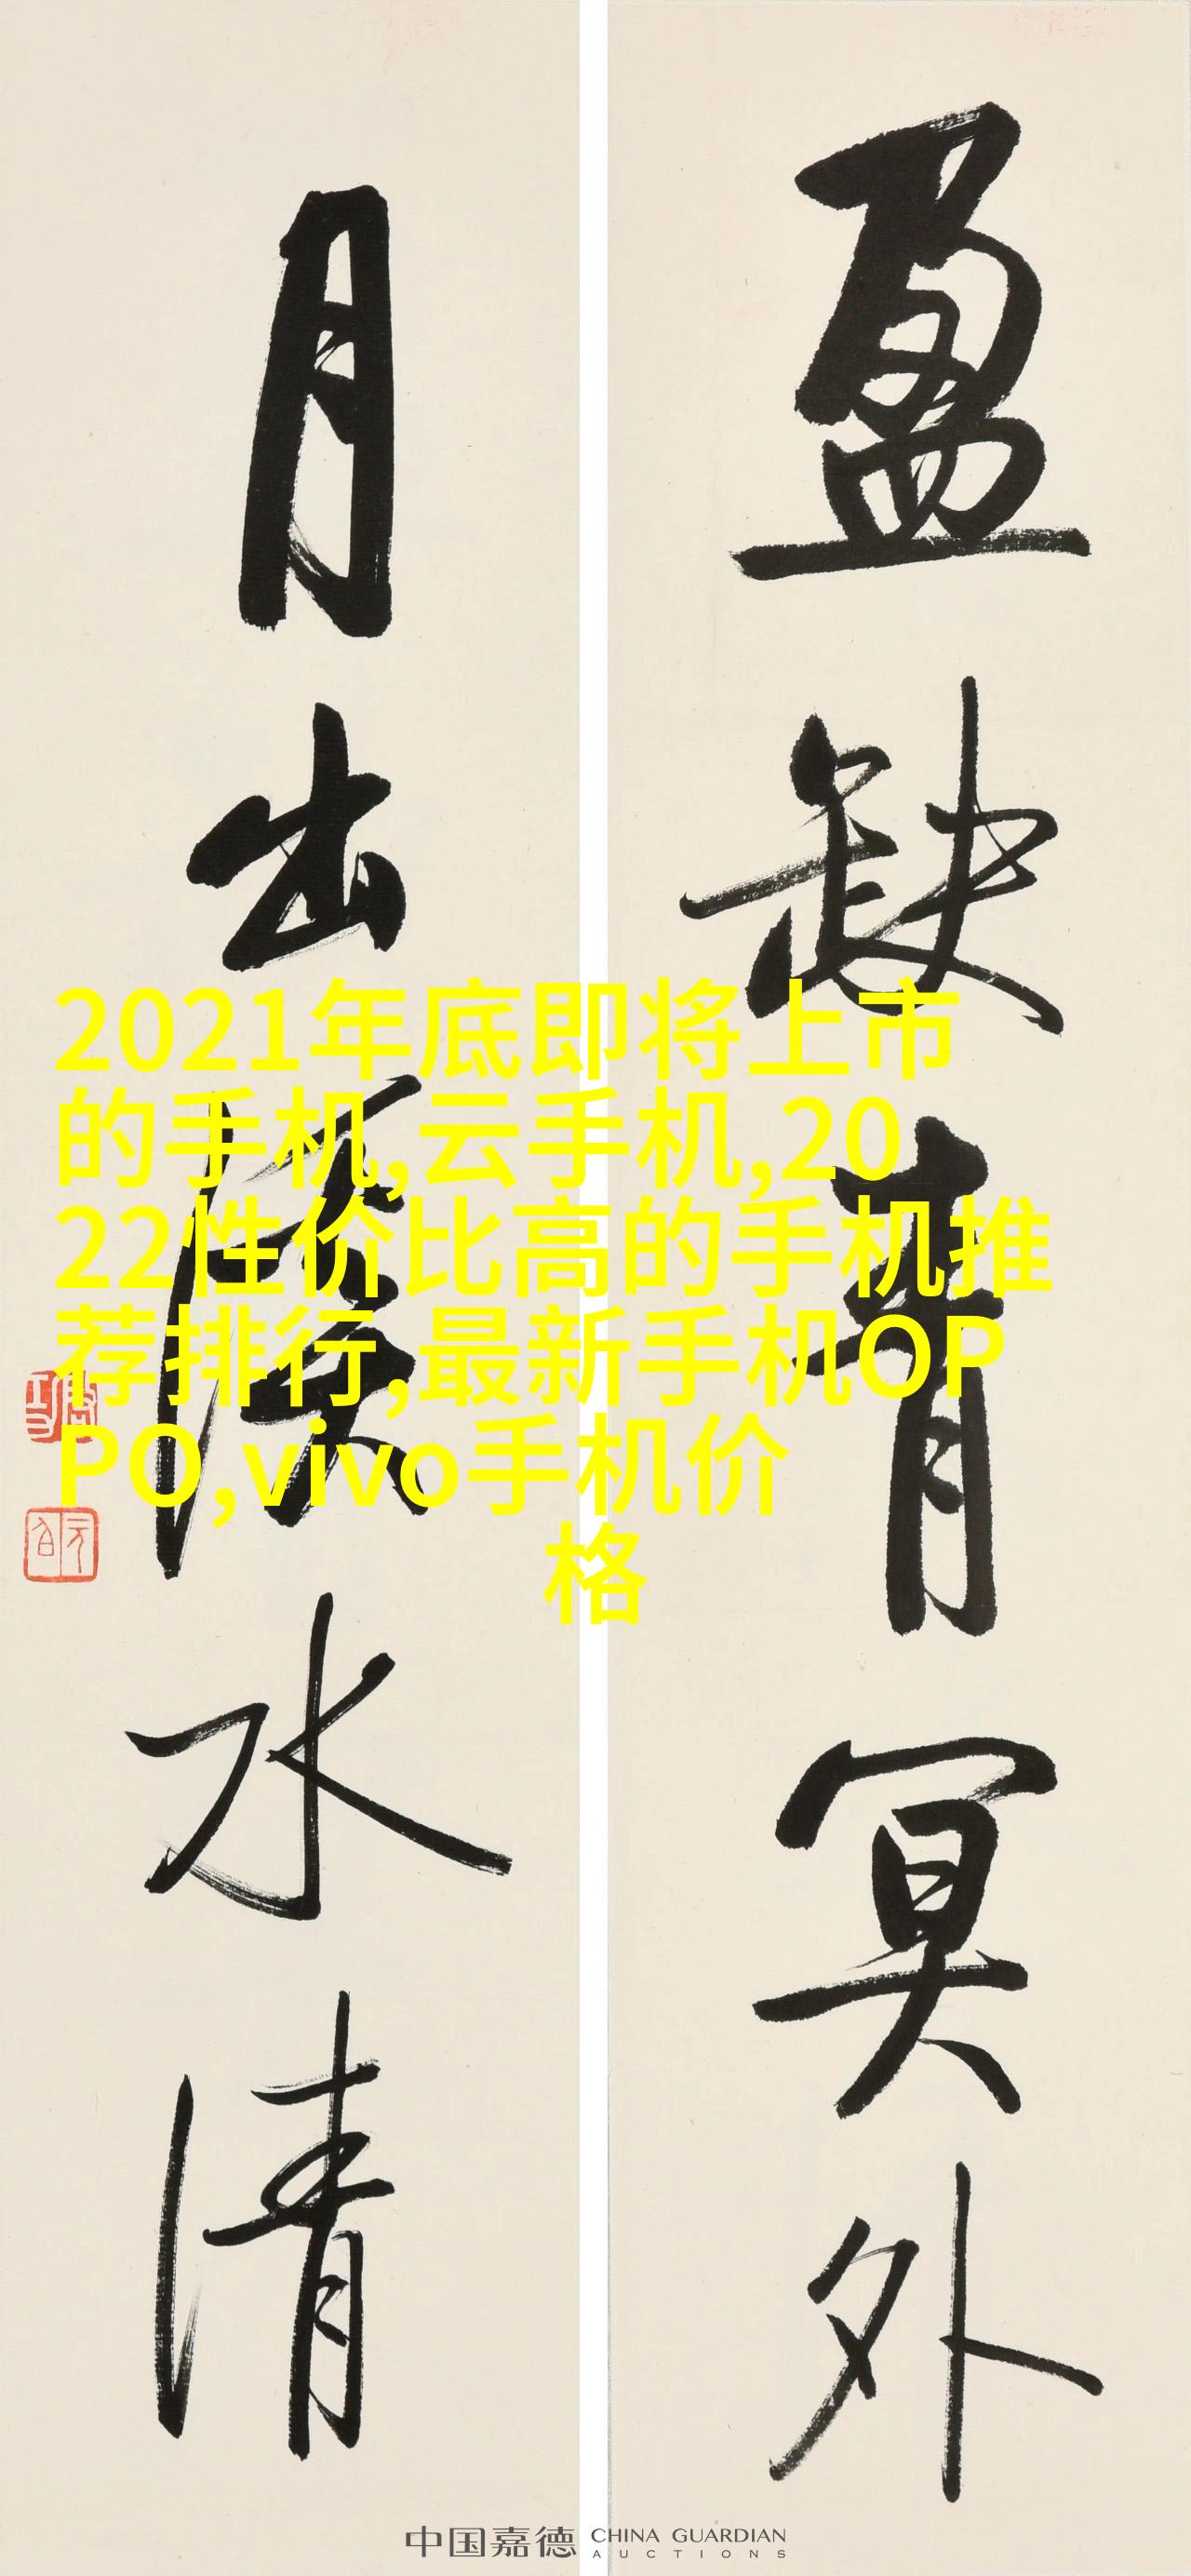 盈缺青冥外
月出溪水清
2021年底即将上市
的手机,云手机,20
22性价比高的手机推
荐排行,最新手机OP
PO,vivo手机价
格
中国嘉德 CHINA GUARDIAN
AUCTIONS